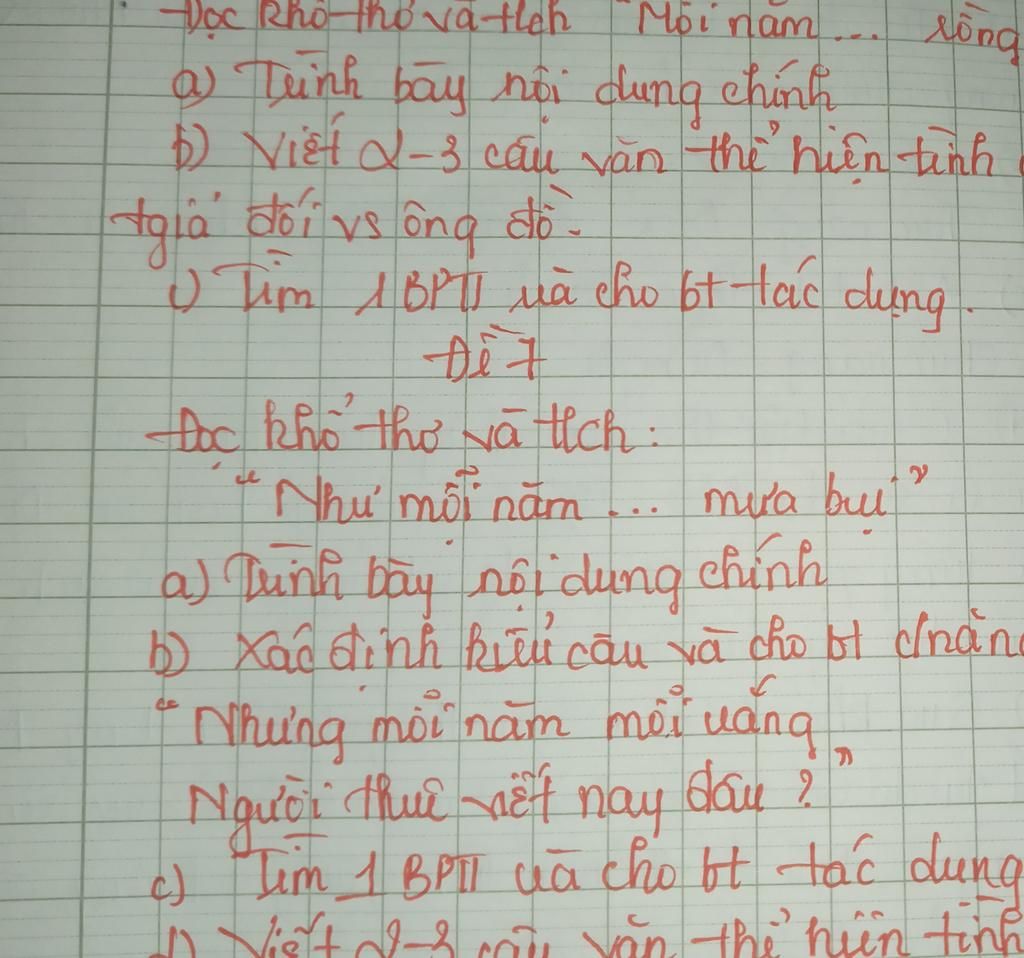 Đọc khổ thơ và tlch "Mỗi năm ... rồng
a) Trình bày nội dung chính
b) Viết 2-3 câu văn thể hiện tình
tgiả đối vs ông đồ.
c) Tìm 1 BPTT và cho bt tác dụng.
Đề 7
Đọc khổ thơ và tlch:
"Như mỗi năm ... mưa bụi"
a) Trình bày nội dung chính
b) Xác định kiểu câu và cho bt c/năng
"Nhưng mỗi năm mỗi vắng
Người thuê viết nay đâu?"
c) Tìm 1 BPTT và cho bt tác dụng
d) Viết 2-3 câu văn thể hiện tình